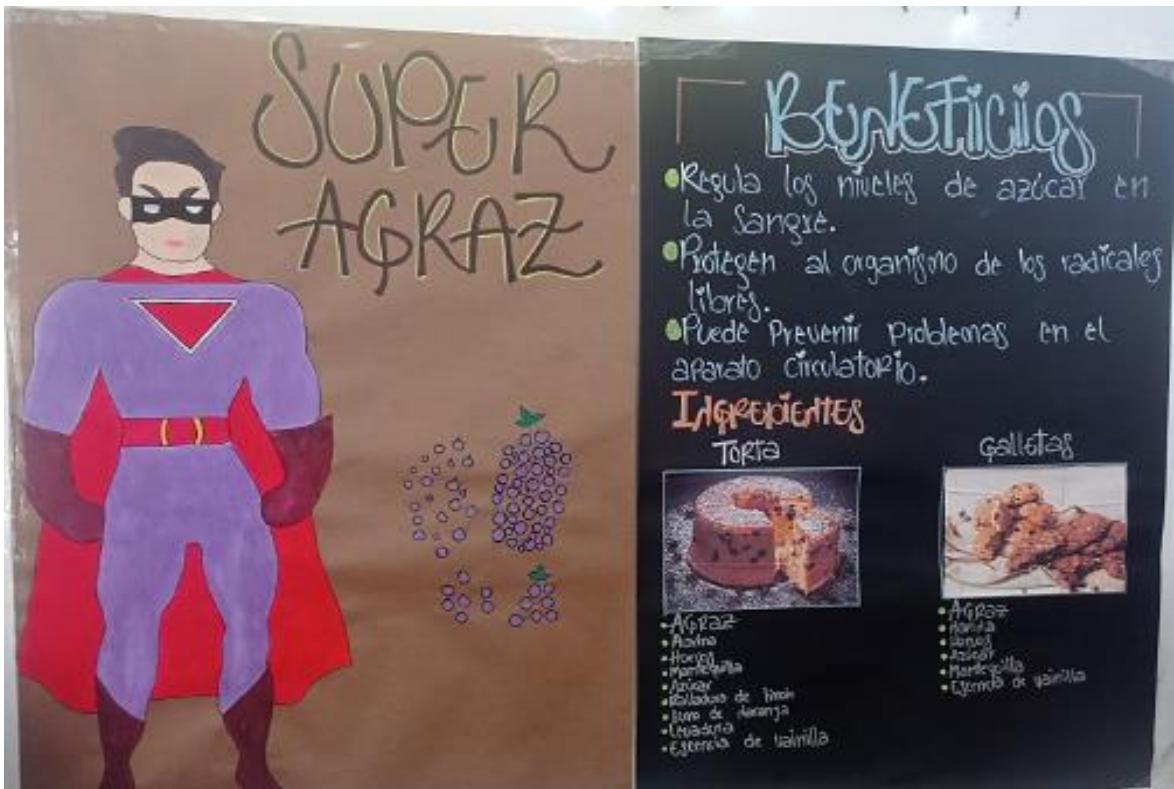 SUPER
AGRAZ
BENEFICIOS
Regula los niveles de azúcar en
la Sangre.
Protegen al organismo de los radicales
libres.
Puede Prevenir Problemas en el
aparato CirculatoRio.
INGREDIENTES
TORTA
galletas
AGRAZ
Harina
Huevos
Mantequilla
Azúcar
Ralladura de limón
de naranja
Levadura
Esencia de vainilla
AGRAZ
Harina
Huevos
Azúcar
Mantequilla
Esencia de vainilla